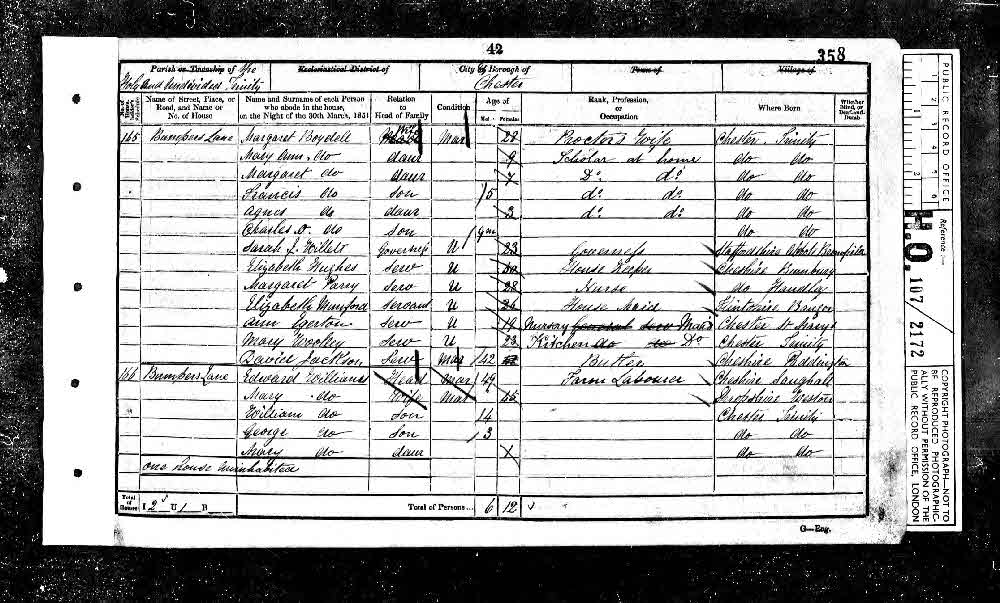 42
358
Parish or Township of The
Ecclesiastical District of
City or Borough of
Town of
Village of
Holy and Undivided Trinity
Chester
Name of Street, Place, or Road, and Name or No. of House
Name and Surname of each Person who abode in the house, on the Night of the 30th March, 1851
Relation to Head of Family
Condition
Age of
Males
Females
Rank, Profession, or Occupation
Where Born
Whether Blind, or Deaf-and-Dumb
165 Bumpers Lane Margaret Boydell Wife Mar Proctor's Wife Chester Trinity
Mary Ann do daur 9 Scholar at home do do
Margaret do daur 7 Do. do. do do
Francis do son 5 do. do. do do
Agnes do daur 3 do. do. do do
Charles do son do do
Sarah J. Governess U 23 Governess Staffordshire
Elizabeth Hughes Serv U House Keeper Cheshire Bunbury
Margaret Parry Serv U 28 Nurse do Handley
Elizabeth Servant U House Maid Flintshire Bangor
Ann Egerton Serv U 19 General Serv Maid Chester St Marys
Mary Serv U 23 Kitchen do do Do Chester Trinity
David Jackson Serv Mar 42 Butler Cheshire
166 Bumpers Lane Edward Williams Head Mar 49 Farm Labourer Cheshire Saughall
Mary do Wife Mar Shropshire Weston
William do Son 14 Chester Trinity
George do Son do do
Mary do daur do do
One house Uninhabited
Total of Houses I 2 U 1 B
Total of Persons... 6 12
G—Eng.
PUBLIC RECORD OFFICE
1 2 3 4 5 6
Reference:-
H.O. 107/2172
COPYRIGHT PHOTOGRAPH—NOT TO
BE REPRODUCED PHOTOGRAPHIC-
ALLY WITHOUT PERMISSION OF THE
PUBLIC RECORD OFFICE, LONDON